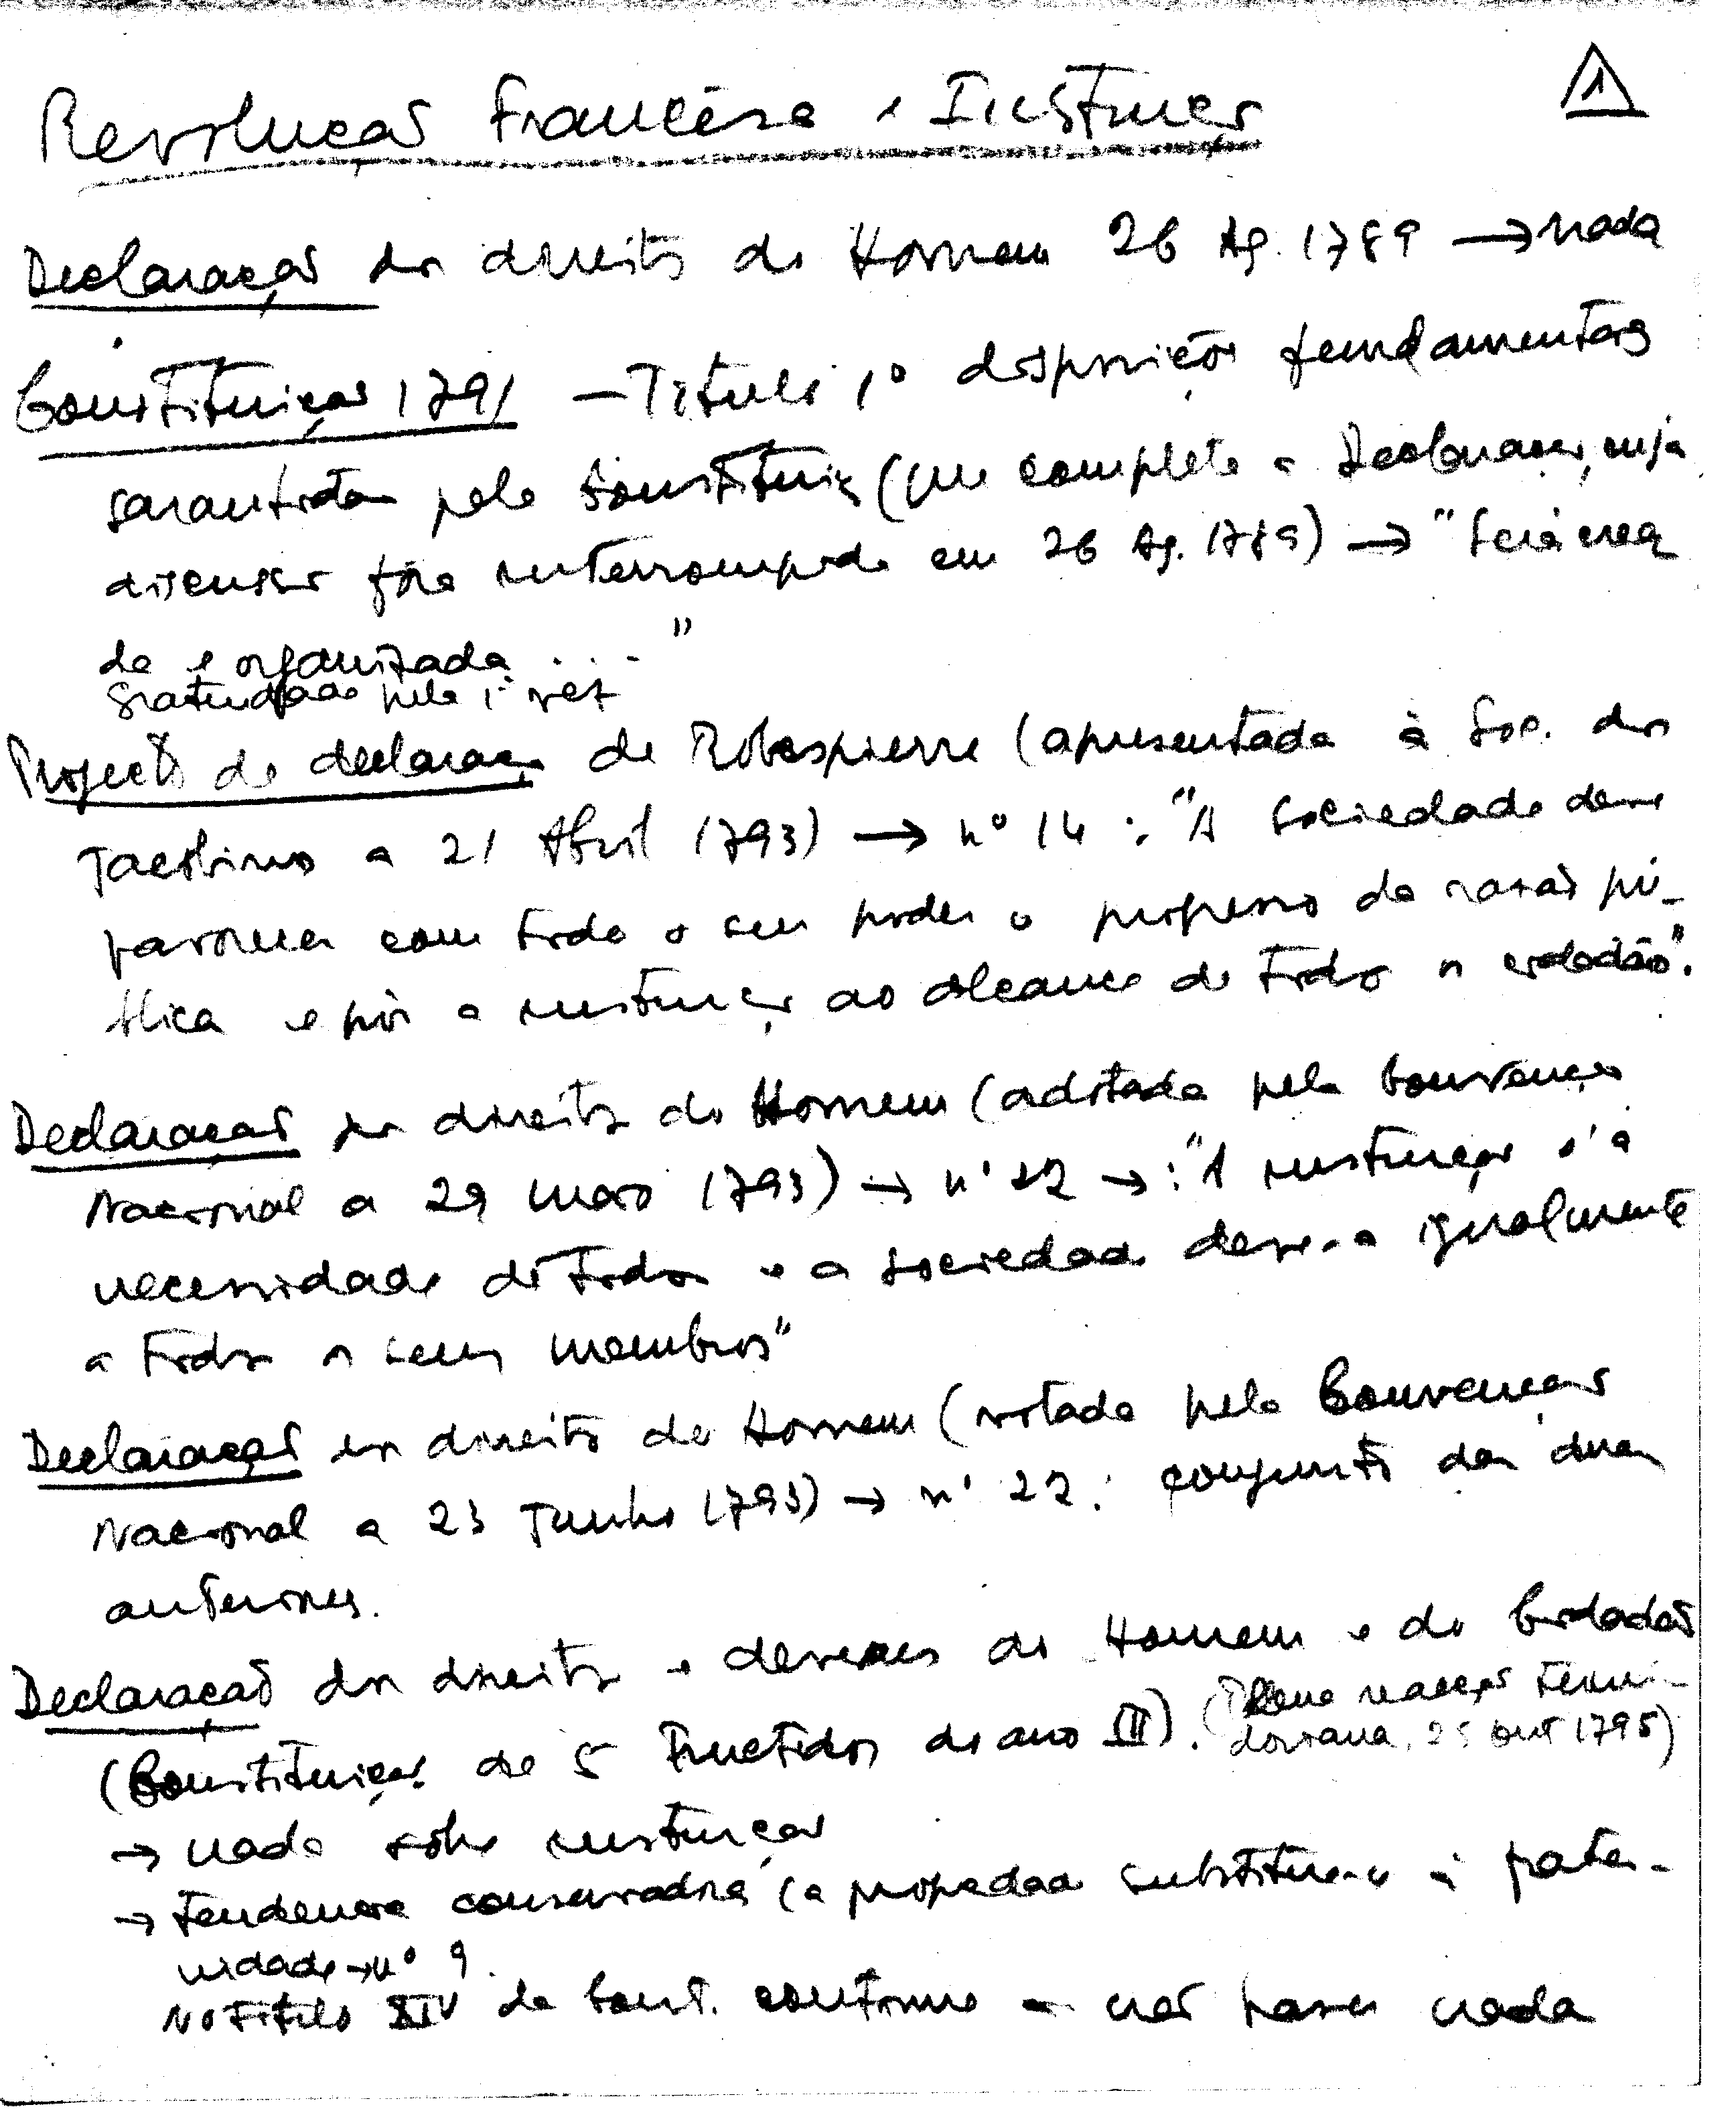 1
Revolução Francêsa e Instrução
Declaração dos direitos do Homem 26 Ag. 1789 → nada
Constituição 1791 — Título 1º disposições fundamentais
garantidas pela Constituição (que completa a Declaração, cuja
discussão fôra interrompida em 26 Ag. 1789) → "Será crea
da e organizada . . . "
gratuidade pela 1ª vez
Projecto de declaração de Robespierre (apresentada à Soc. dos
Jacobinos a 21 Abril 1793) → nº 14 : "A sociedade deve
favorecer com todo o seu poder o progresso da razão pú-
blica e pôr a instrução ao alcance de todos os cidadãos".
Declaração dos direitos do Homem (adotada pela Convenção
Nacional a 29 maio 1793) → nº 22 → : "A instrução é a
necessidade de todos e a sociedade deve-a igualmente
a todos os seus membros"
Declaração dos direitos do Homem (votada pela Convenção
Nacional a 23 Junho 1793) → nº 22 : conjunto das duas
anteriores.
Declaração dos direitos e deveres do Homem e do Cidadão
(Constituição de 5 Fructidor do ano III). (Plena reacção termi-
doriana, 25 out 1795)
→ nada sôbre instrução
→ tendencia conservadora (a propriedade substitue-se à frater-
nidade → nº 9.
No título XIV da Const. continua a não haver nada